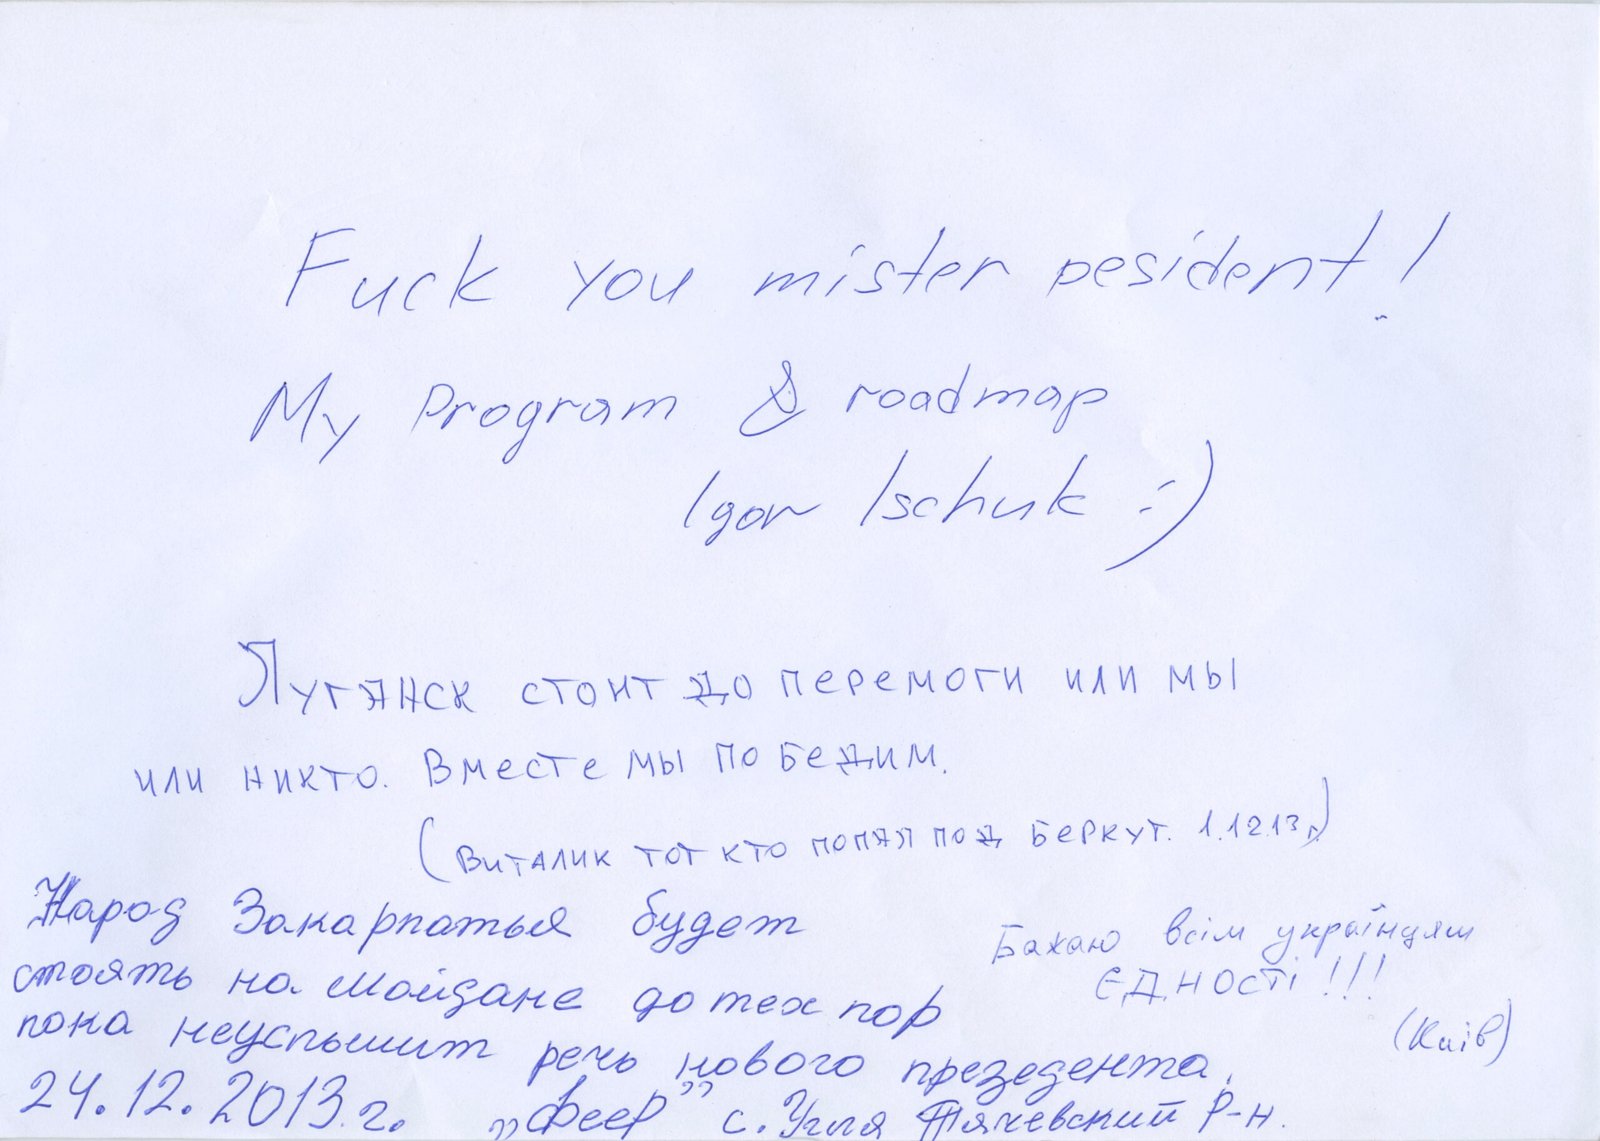 Fuck you mister pesident!
My Program & roadmap
Igor Ischuk :)
Луганск стоит до перемоги или мы
или никто. Вместе мы победим.
(Виталик тот кто попал под Беркут. 1.12.13г.)
Народ Закарпатья будет
стоять на Майдане до тех пор
пока неуслышит речь нового презедента.
24.12.2013.г. „Феер” с. Угля Тячевский р-н.
Бажаю всім українцям
ЄДНОСТі!!!
(Київ)